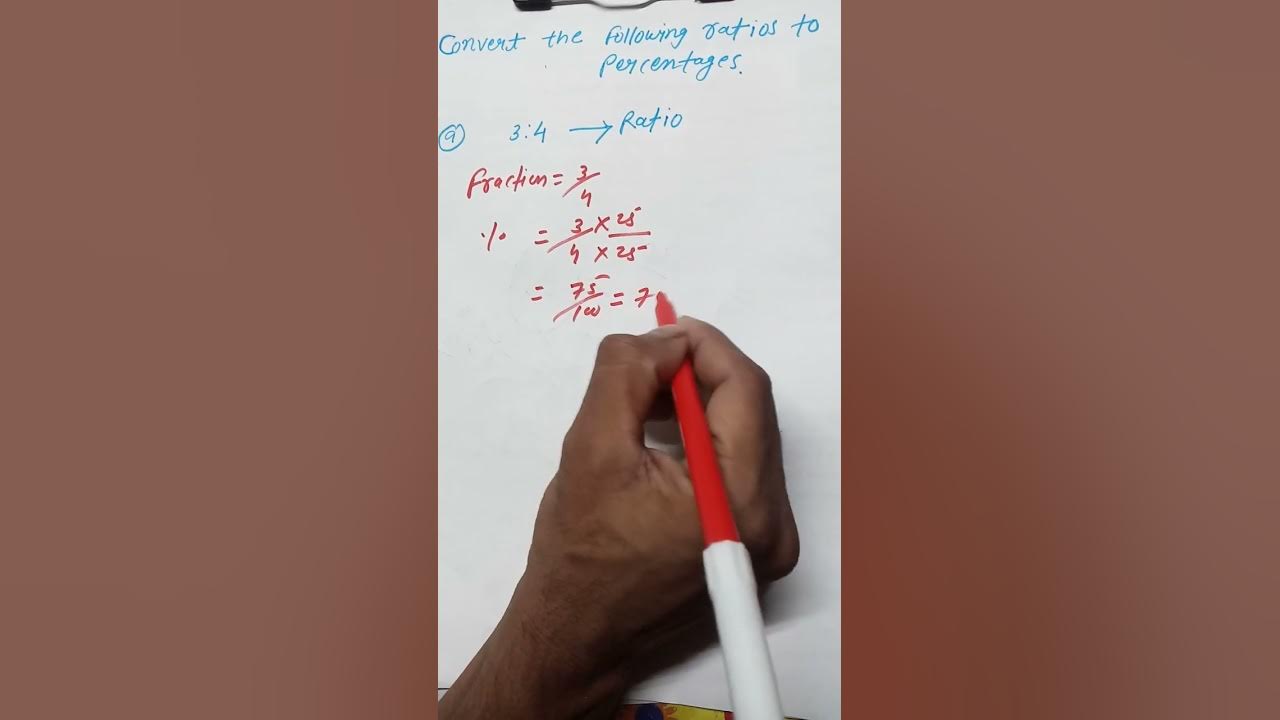 Convert the following ratios to
Percentages.
a 3:4 → Ratio
fraction = 3/4
% = 3/4 × 25/25
= 75/100 = 7